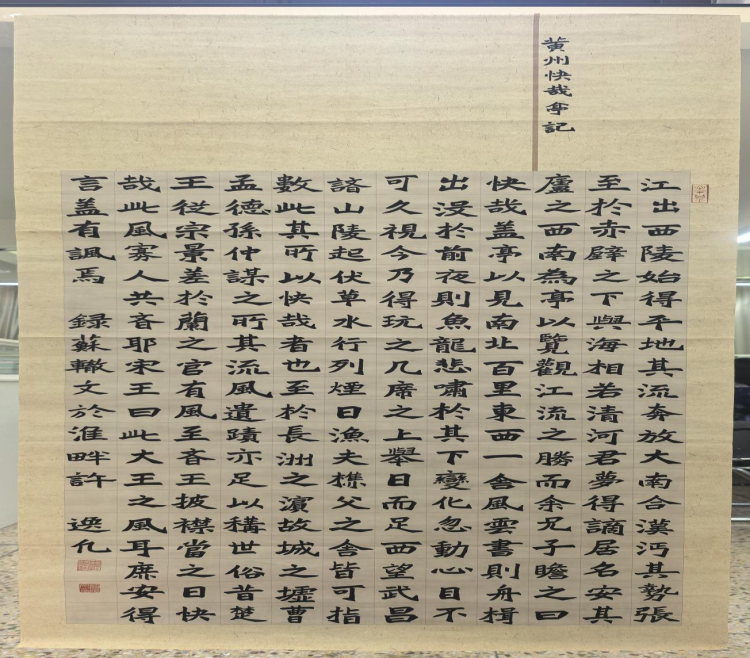 黄州快哉亭記
江出西陵始得平地其流奔放大南合漢沔其勢張
至於赤壁之下與海相若清河君夢得謫居名安其
廬之西南為亭以覽觀江流之勝而余兄子瞻之曰
快哉盖亭以見南北百里東西一舍風雲書則舟楫
出没於前夜則魚龍悲嘯於其下變化忽動心目不
可久視今乃得玩之几席之上舉日而足西望武昌
諸山陵起伏草木行列煙日漁夫樵父之舍皆可指
數此其所以快哉者也至於長洲之濱故城之墟曹
孟德孫仲謀之所其流風遺蹟亦足以稱世俗昔楚
王從宗景差於蘭之官有風至吝王披襟當之曰快
哉此風寡人共吝耶宋王曰此大王之風耳庶安得
言盖有諷焉 録蘇轍文於淮畔許 逸